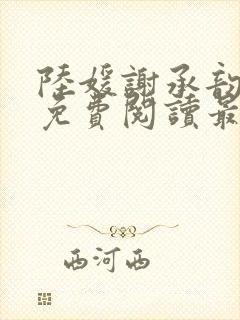 陸媛謝承韵
免費閱讀最
西河西